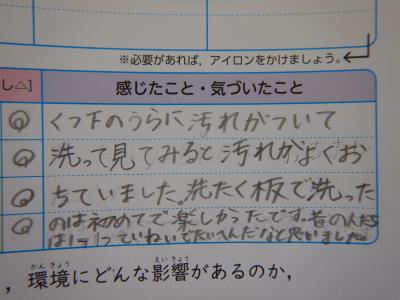 ※必要があれば、アイロンをかけましょう。
し△]
感じたこと・気づいたこと
くつ下のうらに汚れがついて
洗って見てみると汚れがよくお
ちていました。洗たく板で洗った
のは初めてで楽しかったです。昔の人たち
は ていねいでたいへんだなと思いました。
かんきょう えいきょう
,環境にどんな影響があるのか,